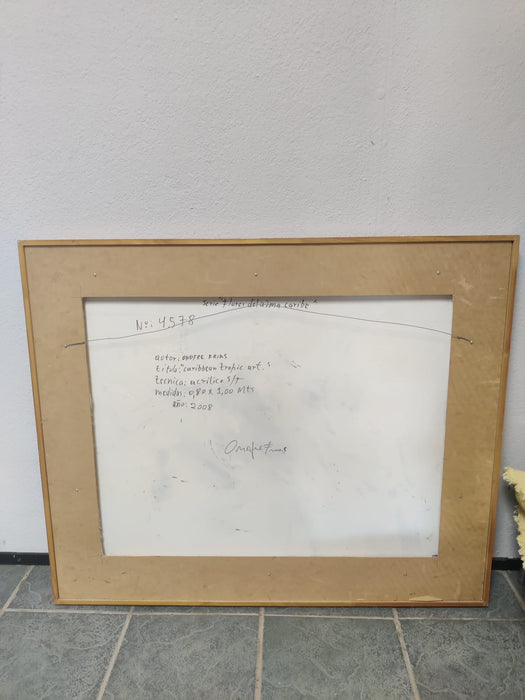 serie "Flores del alma caribe"
Nº: 4,578
autor: ONOFRE FRIAS
titulo: "caribbean tropic art."
tecnica: acrilico s/T
medidas: 0,80 x 1,00 Mts
año: 2008
Onofre Frias